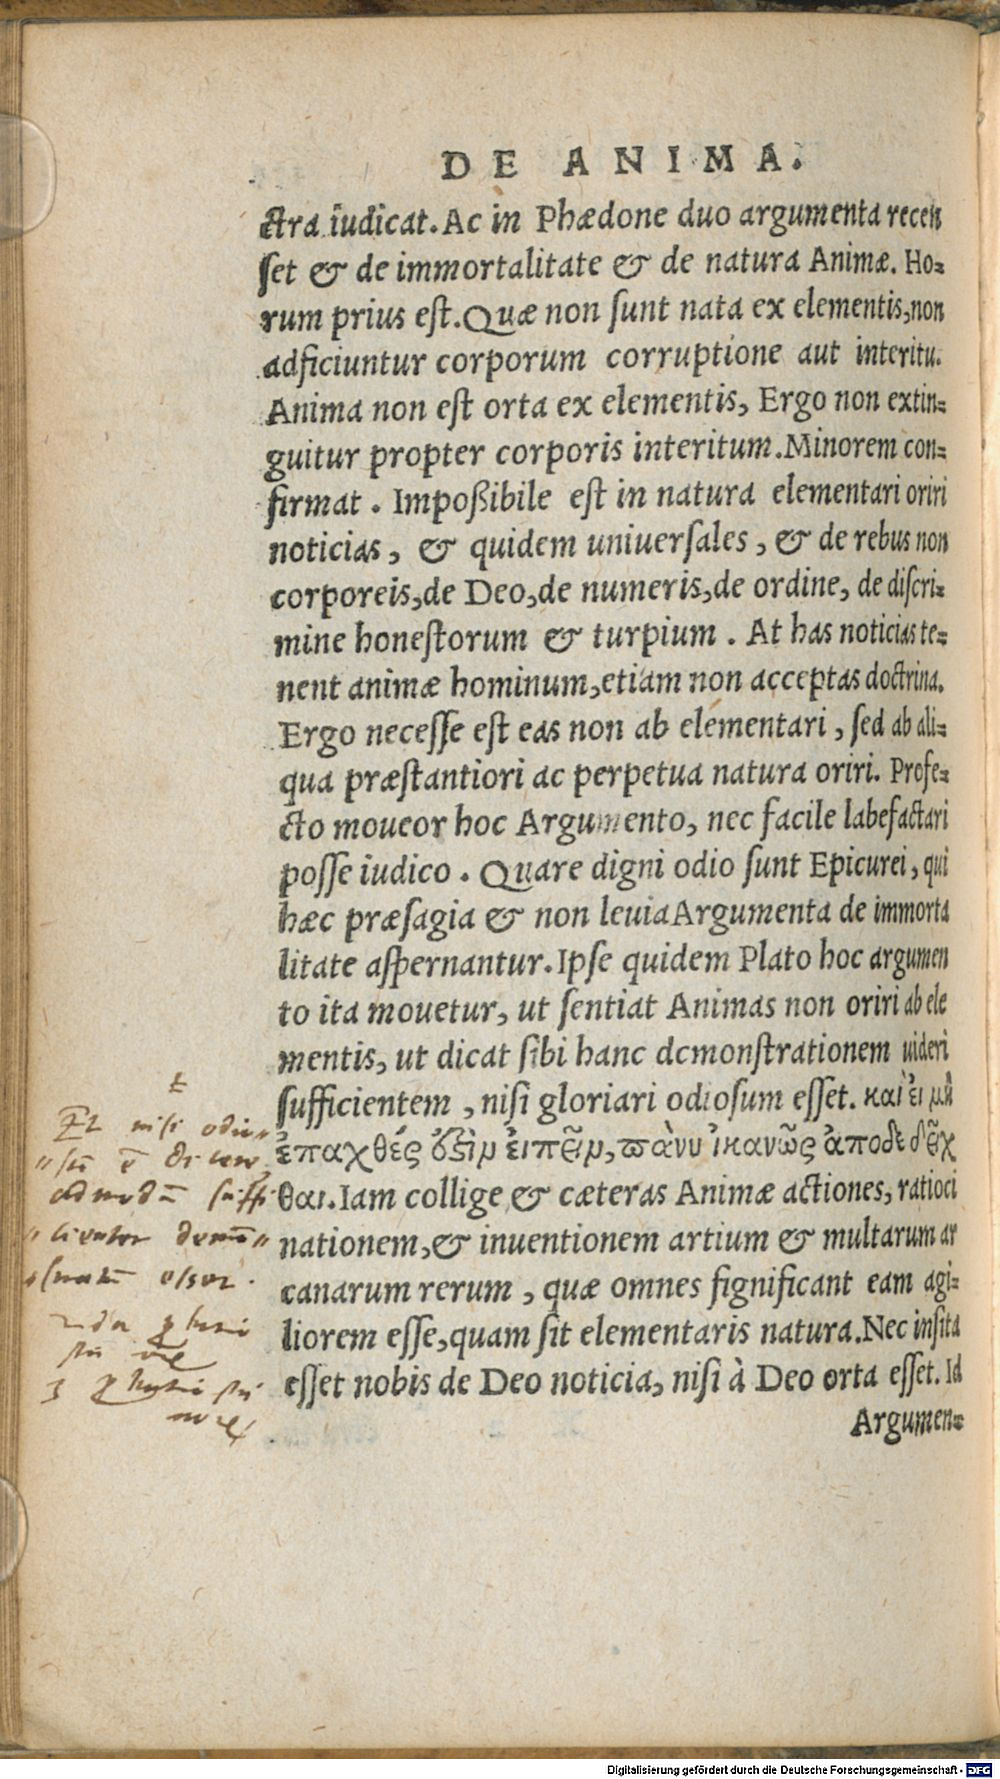 DE ANIMA.
ctra iudicat. Ac in Phædone duo argumenta recen
ſet & de immortalitate & de natura Animæ. Ho-
rum prius eſt. Quæ non ſunt nata ex elementis, non
adficiuntur corporum corruptione aut interitu.
Anima non eſt orta ex elementis, Ergo non extin-
guitur propter corporis interitum. Minorem con-
firmat. Impoßibile eſt in natura elementari oriri
noticias, & quidem uniuerſales, & de rebus non
corporeis, de Deo, de numeris, de ordine, de diſcri-
mine honeſtorum & turpium. At has noticias te-
nent animæ hominum, etiam non acceptas doctrina.
Ergo neceſſe eſt eas non ab elementari, ſed ab ali-
qua præſtantiori ac perpetua natura oriri. Profe-
cto moueor hoc Argumento, nec facile labefactari
poſſe iudico. Quare digni odio ſunt Epicurei, qui
hæc præſagia & non leuia Argumenta de immorta
litate aſpernantur. Ipſe quidem Plato hoc argumen
to ita mouetur, ut ſentiat Animas non oriri ab ele
mentis, ut dicat ſibi hanc demonſtrationem uideri
ſufficientem, niſi gloriari odioſum eſſet. καὶ εἰ μὴ
ἐπαχθές ὅξιν εἰπεῖν, πάνυ ἱκανῶς ἀποδεδεῖχ
θαι. Iam collige & cæteras Animæ actiones, ratioci
nationem, & inuentionem artium & multarum ar
canarum rerum, quæ omnes ſignificant eam agi-
liorem eſſe, quam ſit elementaris natura. Nec inſita
eſſet nobis de Deo noticia, niſi à Deo orta eſſet. Id
Argumen-
Et nisi odio
Digitalisierung gefördert durch die Deutsche Forschungsgemeinschaft - DFG